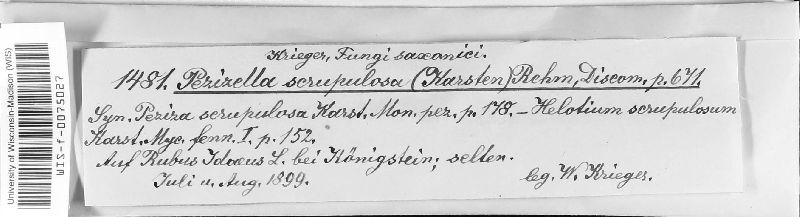 University of Wisconsin-Madison (WIS)
WIS-f-0075027
Krieger, Fungi saxonici.
1481. Pezizella scrupulosa (Karsten) Rehm, Discom. p. 671.
Syn. Peziza scrupulosa Karst. Mon. pez. p. 178. – Helotium scrupulosum
Karst. Myc. fenn. I. p. 152.
Auf Rubus Idaeus L. bei Königstein; selten.
Juli u. Aug. 1899.
leg. W. Krieger.